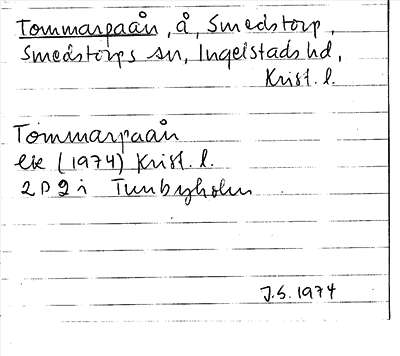 Tommarpaån, å, Smedstorp,
Smedstorps sn, Ingelstads hd,
Krist. l.
Tommarpaån
ek (1974) Krist. l.
2D9i Tunbyholm
J.S. 1974